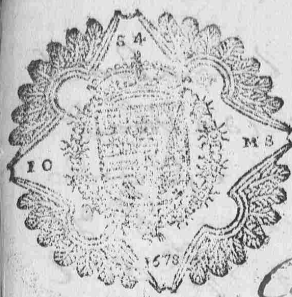 S 4
I O M S
1678